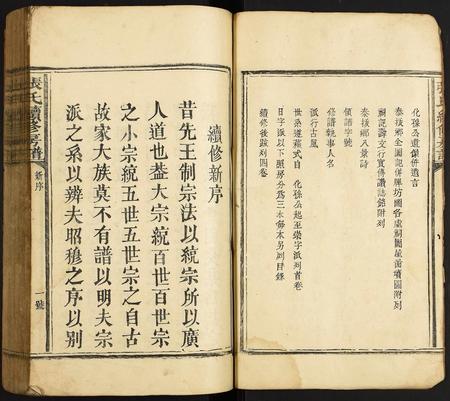 化孫公遺像併遺言
泰拔鄉全圖記併牌坊圖各處祠圖屋崗墳圖附列
祠記壽文行實傳讚誌銘附列
泰拔鄉八景詩
領譜字號
修譜執事人名
派行古風
世系邊蕉式自化孫公起至榮字派列首卷
日字派以下照房分為三本每本另列目錄
續修後跋列四卷
張氏續修房譜
續修新序
昔先王制宗法以統宗所以廣
人道也蓋大宗統百世百世宗
之小宗統五世五世宗之自古
故家大族莫不有譜以明夫宗
派之系以辨夫昭穆之序以別
張氏續修房譜
新序
一號